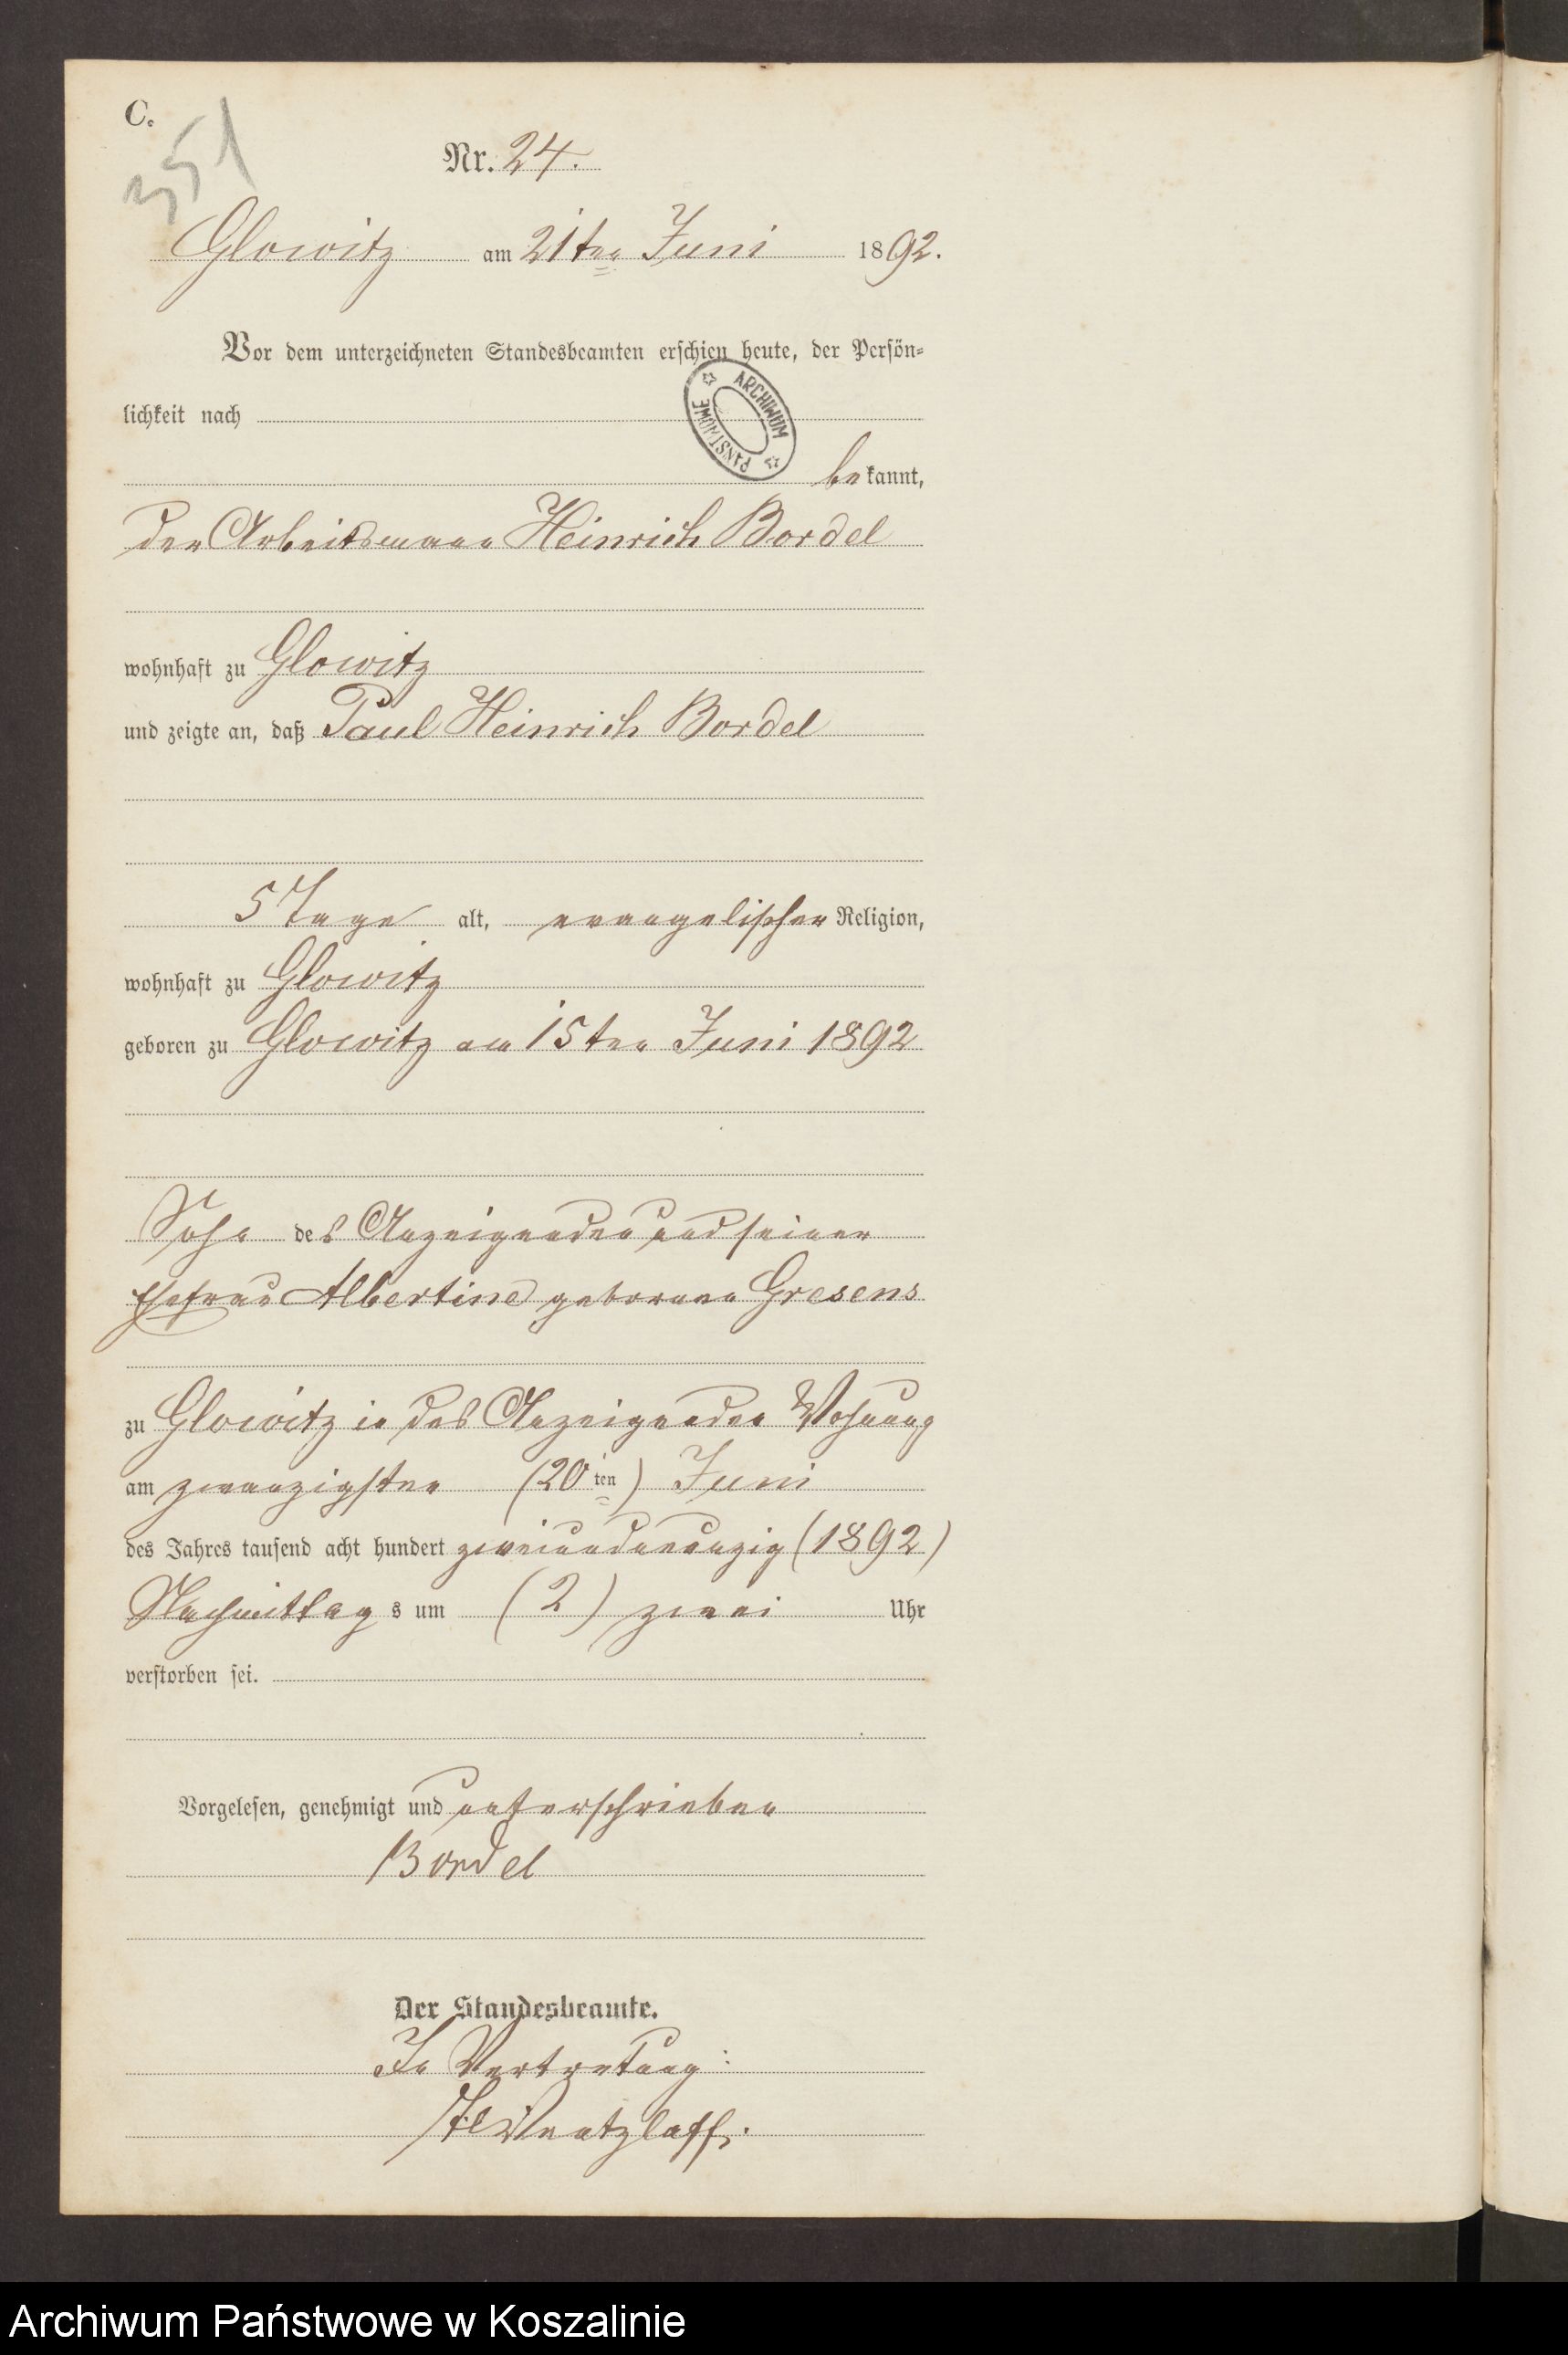 C.
351
Nr. 24.
Glowitz am 21ten Juni 1892.
Vor dem unterzeichneten Standesbeamten erschien heute, der Persön-
lichkeit nach
ARCHIWUM PAŃSTWOWE
bekannt,
der Arbeitsmann Heinrich Bordel
wohnhaft zu Glowitz
und zeigte an, daß Paul Heinrich Bordel
5 Tage alt, evangelischer Religion,
wohnhaft zu Glowitz
geboren zu Glowitz am 15ten Juni 1892
Sohn des Anzeigenden und seiner
Ehefrau Albertine geborene Gresens
zu Glowitz in des Anzeigenden Wohnung
am zwanzigsten (20ten) Juni
des Jahres tausend acht hundert zweiundneunzig (1892)
Nachmittags um (2) zwei Uhr
verstorben sei.
Vorgelesen, genehmigt und unterschrieben
Bordel
Der Standesbeamte.
In Vertretung:
Wentzlaff.
Archiwum Państwowe w Koszalinie